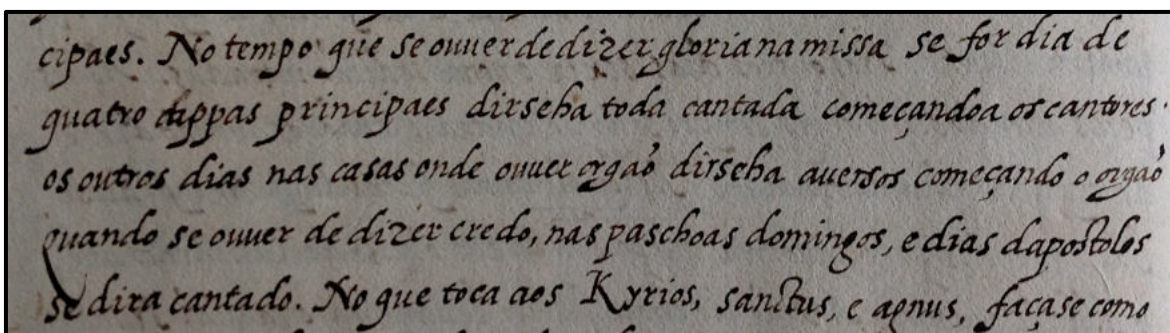 cipaes. No tempo que se ouuer de dizer gloria na missa se for dia de
quatro cappas principaes dirseha toda cantada começandoa os cantores.
os outros dias nas casas onde ouuer orgaõ dirseha auersos começando o orgaõ
quando se ouuer de dizer credo, nas paschoas domingos, e dias dapostolos
se dira cantado. No que toca aos Kyrios, sanctus, e agnus, façase como